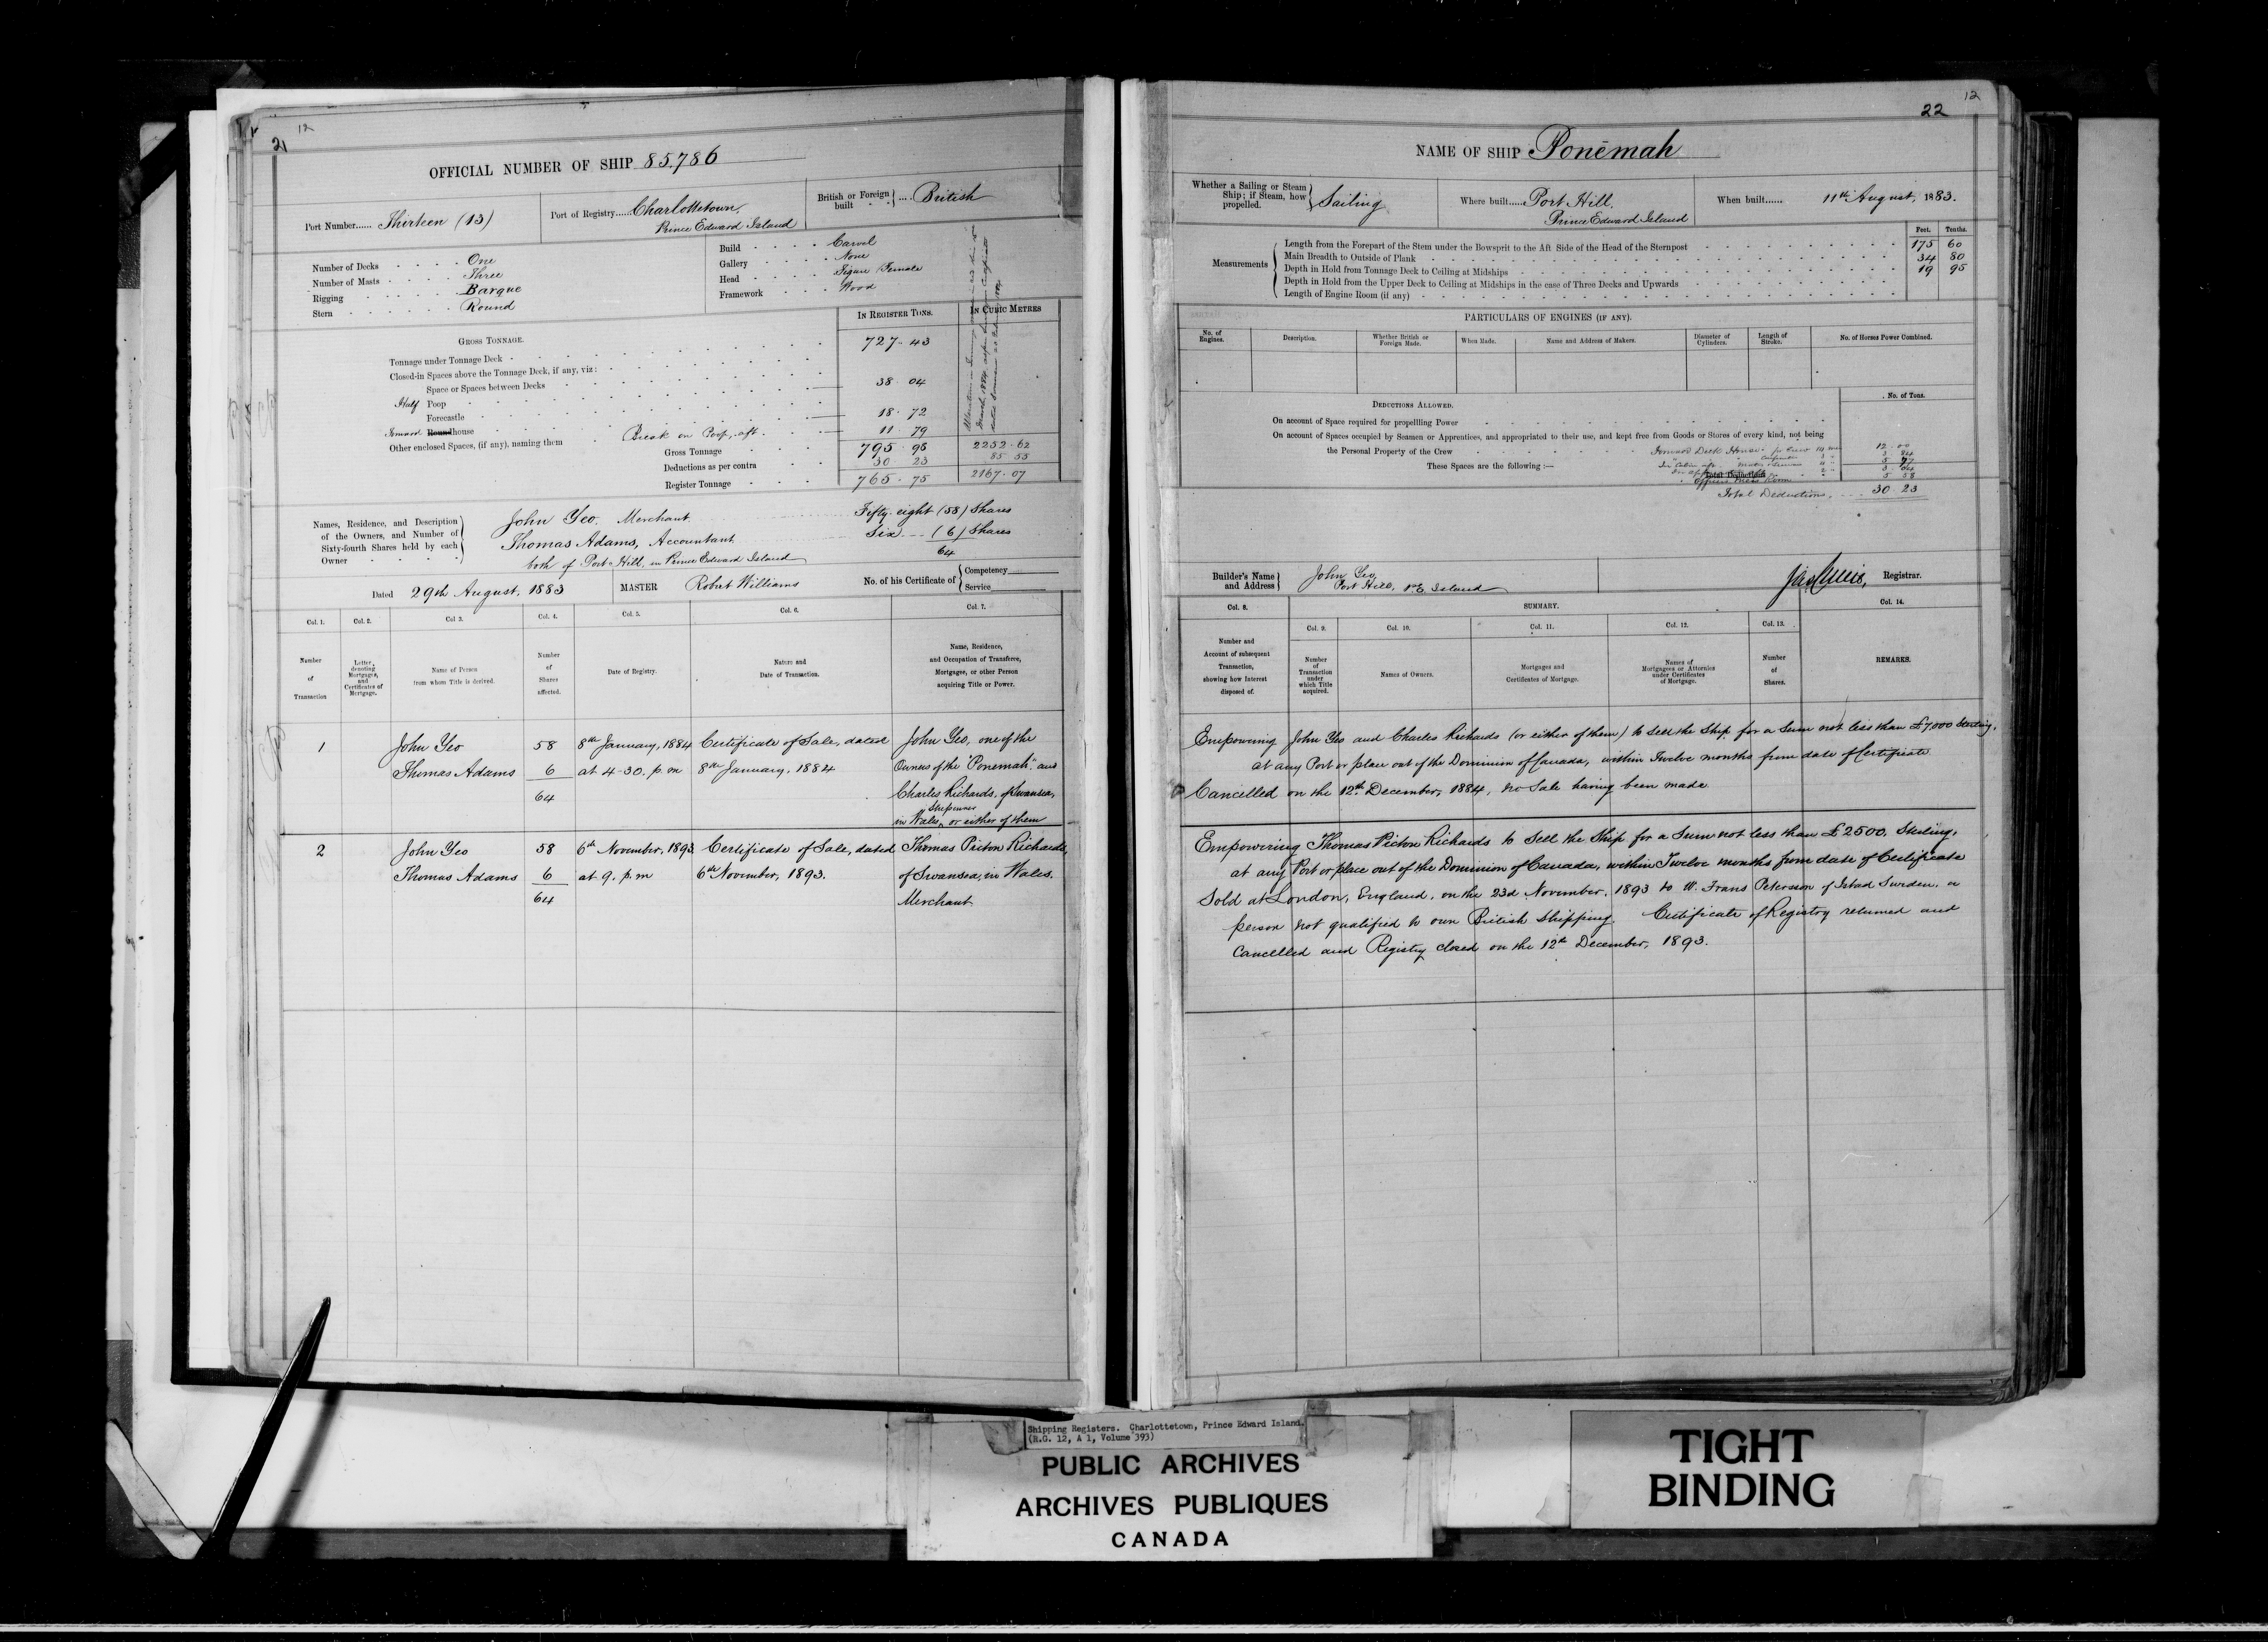 21
12
OFFICIAL NUMBER OF SHIP 85,786
Port Number...... Thirteen (13)
Port of Registry..... Charlottetown,
Prince Edward Island
British or Foreign built ... British
Number of Decks One
Number of Masts Three
Rigging Barque
Stern Round
Build Carvel
Gallery None
Head Figure Female
Framework Wood
IN REGISTER TONS.
IN CUBIC METRES
GROSS TONNAGE.
Tonnage under Tonnage Deck 727 43
Closed-in Spaces above the Tonnage Deck, if any, viz:
Space or Spaces between Decks
Half Poop 38 04
Forecastle
Forward Roundhouse 18 72
Other enclosed Spaces, (if any), naming them Break on Poop, aft. 11 79
Gross Tonnage 795 98 2252.62
Deductions as per contra 30 23 85 55
Register Tonnage 765 75 2167.07
Names, Residence, and Description
of the Owners, and Number of
Sixty-fourth Shares held by each
Owner
John Yeo. Merchant. Fifty-eight (58) Shares
Thomas Adams, Accountant Six (6) Shares
64
both of Port Hill, in Prince Edward Island
Dated 29th August, 1883
MASTER Robert Williams
No. of his Certificate of Competency
Service
Col. 1. Col. 2. Col 3. Col. 4. Col. 5. Col. 6. Col. 7.
Number of Transaction
Letter, denoting Mortgages, and Certificates of Mortgage.
Name of Person from whom Title is derived.
Number of Shares affected.
Date of Registry.
Nature and Date of Transaction.
Name, Residence, and Occupation of Transferee, Mortgagee, or other Person acquiring Title or Power.
1 John Yeo 58 8th January, 1884 Certificate of Sale, dated John Yeo, one of the
Thomas Adams 6 at 4-30. p.m 8th January, 1884 Owners of the "Ponemah" and
64 Charles Richards, of Swansea,
Shipowner
in Wales, or either of them
2 John Yeo 58 6th November, 1893 Certificate of Sale, dated Thomas Picton Richards,
Thomas Adams 6 at 9. p.m 6th November, 1893. of Swansea, in Wales.
64 Merchant
12
22
NAME OF SHIP Ponēmah
Whether a Sailing or Steam Ship; if Steam, how propelled. Sailing
Where built..... Port Hill,
Prince Edward Island
When built...... 11th August, 1883.
Feet. Tenths.
Measurements
Length from the Forepart of the Stem under the Bowsprit to the Aft Side of the Head of the Sternpost 175 60
Main Breadth to Outside of Plank 34 80
Depth in Hold from Tonnage Deck to Ceiling at Midships 19 95
Depth in Hold from the Upper Deck to Ceiling at Midships in the case of Three Decks and Upwards
Length of Engine Room (if any)
PARTICULARS OF ENGINES (IF ANY).
No. of Engines. Description. Whether British or Foreign Made. When Made. Name and Address of Makers. Diameter of Cylinders. Length of Stroke. No. of Horses Power Combined.
DEDUCTIONS ALLOWED.
No. of Tons.
On account of Space required for propellling Power
On account of Spaces occupied by Seamen or Apprentices, and appropriated to their use, and kept free from Goods or Stores of every kind, not being
the Personal Property of the Crew Forward Deck House 12.00
These Spaces are the following :—
Total Deductions
Total Deductions. 30 23
Builder's Name and Address John Yeo,
Port Hill, P.E. Island
Registrar.
Col. 8. SUMMARY. Col. 14.
Col. 9. Col. 10. Col. 11. Col. 12. Col. 13.
Number and Account of subsequent Transaction, showing how Interest disposed of.
Number of Transaction under which Title acquired.
Names of Owners.
Mortgages and Certificates of Mortgage.
Names of Mortgagees or Attornies under Certificates of Mortgage.
Number of Shares.
REMARKS.
Empowering John Yeo and Charles Richards (or either of them) to sell the Ship for a Sum not less than £7,000 Sterling,
at any Port or place out of the Dominion of Canada, within Twelve months from date of Certificate
Cancelled on the 12th December, 1884, no Sale having been made
Empowering Thomas Picton Richards to Sell the Ship for a Sum not less than £2500. Sterling.
at any Port or place out of the Dominion of Canada, within Twelve months from date of Certificate
Sold at London, England, on the 23d November, 1893 to W. Frans Petersson of Istad Sweden, a
person not qualified to own British Shipping. Certificate of Registry returned and
Cancelled and Registry closed on the 12th December, 1893.
Shipping Registers. Charlottetown, Prince Edward Island.
(R.G. 12, A 1, Volume 393)
PUBLIC ARCHIVES
ARCHIVES PUBLIQUES
CANADA
TIGHT
BINDING